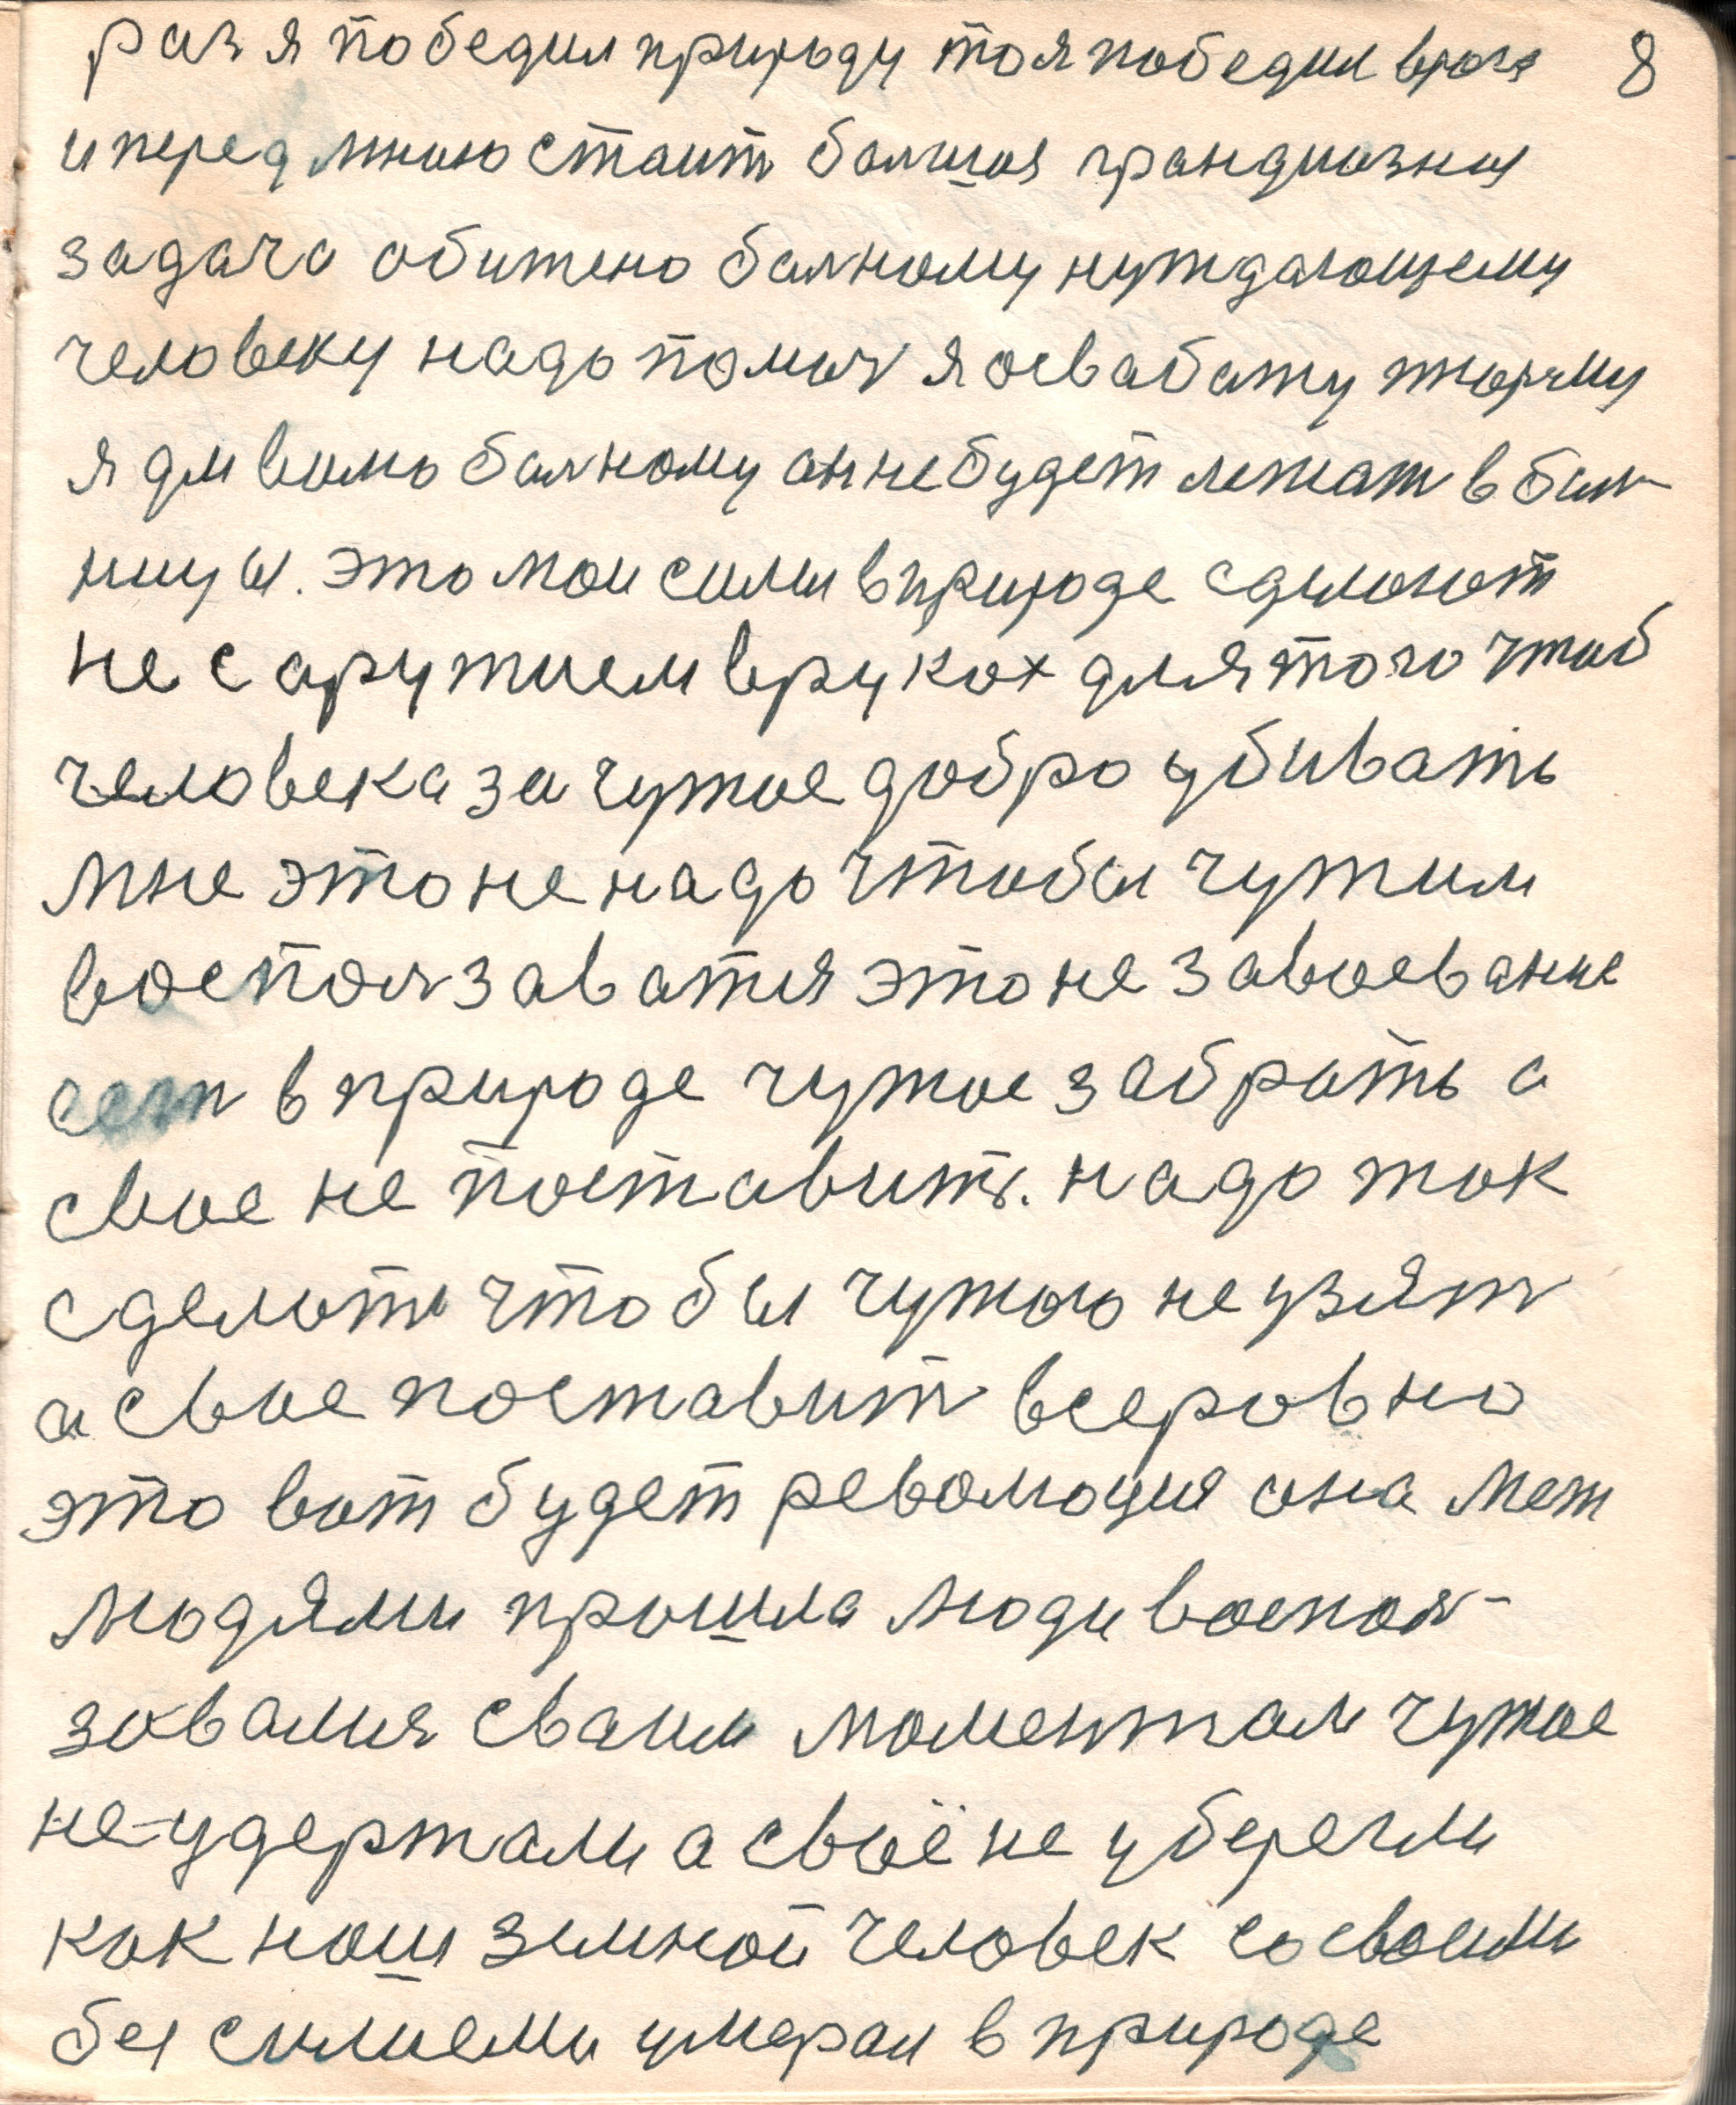 раз я победил природу то я победил врага 8
и перед мною стаит балшая грандиозная
задача обижено балному нуждающему
человеку надо помоч я освабажу тюрму
я дам волю балному он не будет лежат в бал-
ницы. это мои силы в природе сделают
не с аружием в руках для того чтоб
человека за чужое добро убивать
мне это не надо чтобы чужим
воспользаватся это не завоевание
есть в природе чужое забрать а
свое не поставить. надо так
сделать чтобы чужого не узят
а свое поставит всеровно
это вот будет революция она меж
людями прошла люди воспол-
зовалися сваим моментам чужое
не удержали а своё не уберегли
как наш земной человек со своими
бессилиеми умерал в природе